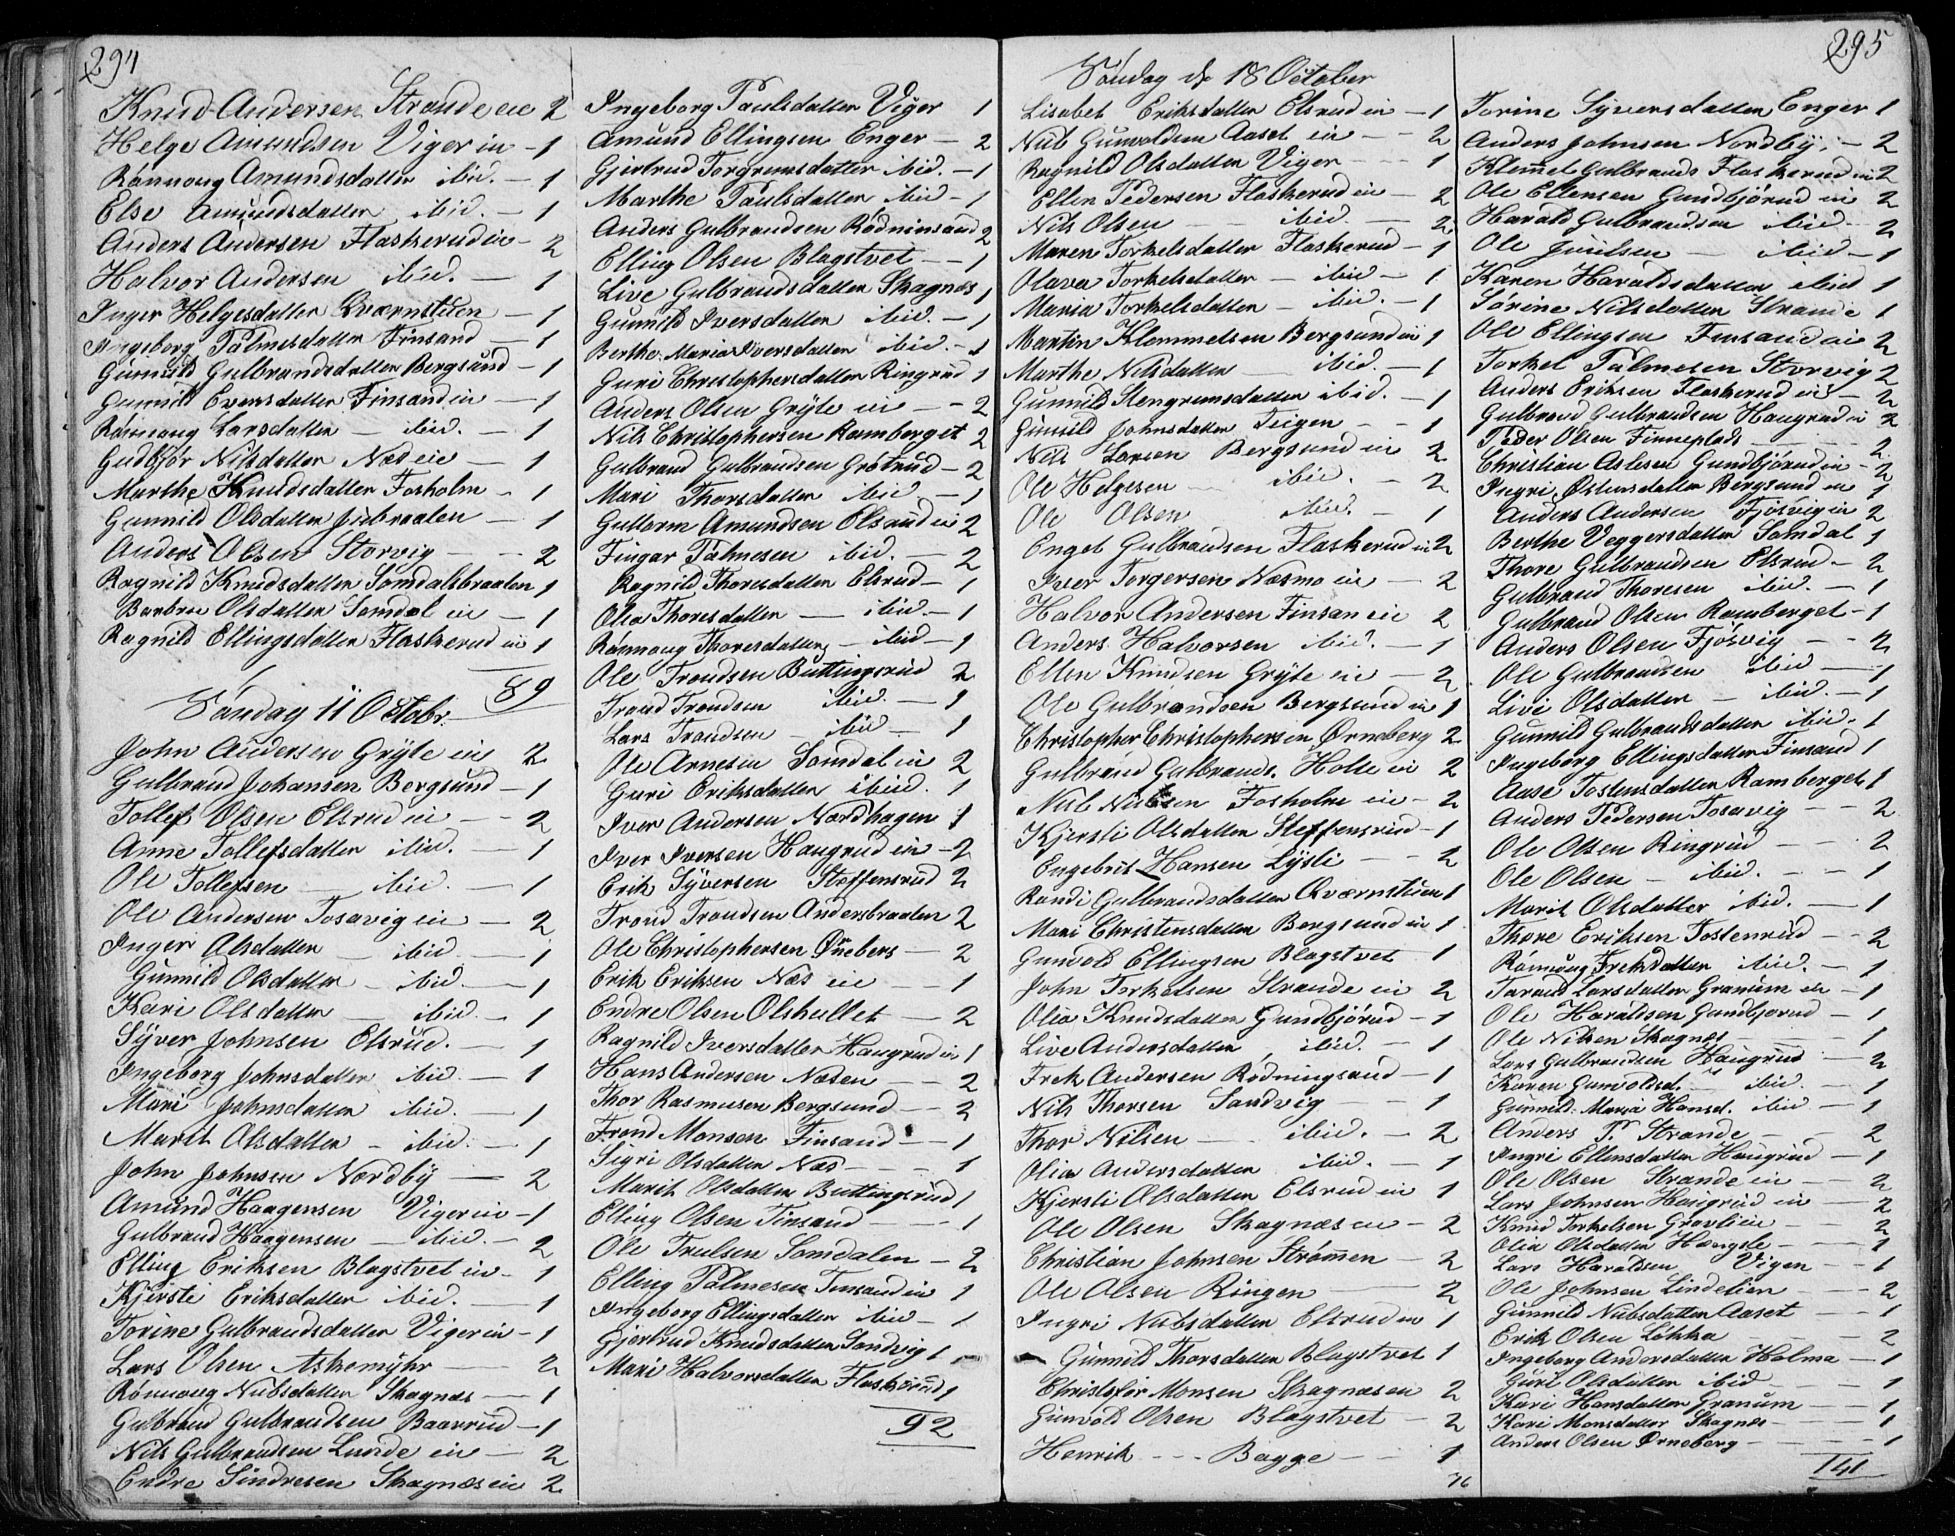 294
Knud Andersen Strande eie 2
Helge Amundsen Viger in - 1
Rønnoug Amundsdatter ibid. - 1
Else Amundsdatter ibid. - 1
Anders Andersen Flaskerud ei - 2
Halvor Andersen ibid. - 1
Inger Helgesdatter Qværnstuen - 1
Ingeborg Palmesdatter Finsand - 1
Gunnild Gulbrandsdatter Bergsund - 1
Gunnild Evensdatter Finsand in - 1
Rønnoug Larsdatter - ibid. - 1
Gudbjør Nilsdatter Næs eie - 1
Marthe Knudsdatter Fosholm - 1
Gunnild Olsdatter Juvbraaten - 1
Anders Olsen Storvig - - 2
Ragnild Knudsdatter Somdalsbraaten 1
Barbroe Olsdatter Somdal ei - 1
Ragnild Ellingsdatter Flaskerud ei 1
89
Søndag 11 Octobr.
John Andersen Gryte eie 2
Gulbrand Johansen Bergsund - 1
Tollef Olsen Elsrud ei - 2
Anne Tollefsdatter ibid. - 1
Ole Tollefsen - ibid. - 1
Ole Andersen Tosavig ei - 2
Inger Olsdatter - ibid - 1
Gunnild Olsdatter - ibid. - 1
Kari Olsdatter - ibid. - 1
Syver Johnsen Elsrud. - 1
Ingeborg Johnsdatter ibid. - 1
Mari Johnsdatter ibid. - 1
Marit Olsdatter - ibid. - 1
John Johnsen Nordby - 2
Amund Haagensen Viger in - 1
Gulbrand Haagensen - ibid. - 2
Elling Eriksen Blagstvet in - 1
Kjerste Eriksdatter ibid. - 1
Torine Gulbrandsdatter Viger in - 1
Lars Olsen Askemyhr - 2
Rønnoug Nubsdatter Skagnæs - 1
Gulbrand Gulbrandsen Baarrud - 1
Nils Gulbrandsen Lunde ei - 2
Endre Sindresen Skagnæs ei 2
Ingeborg Paulsdatter Viger 1
Amund Ellingsen Enger - 2
Gjertrud Torgrimsdatter ibid. - 1
Marthe Paulsdatter ibid - 1
Anders Gulbrandsen Rødninsand 2
Elling Olsen Blagstvet - - 1
Live Gulbrandsdatter Skagnæs 1
Gunnild Iversdatter ibid. - 1
Berthe Maria Iversdatter ibid. - 1
Guri Christophersdatter Ringrud 1
Anders Olsen Gryte ei - - 2
Nils Christophersen Ramberget 2
Gulbrand Gulbrandsen Grøtrud - 2
Mari Thorsdatter ibid - 1
Guttorm Amundsen Elsrud ei 2
Fingar Palmesen ibid. - 2
Ragnild Thoresdatter Elsrud - 1
Olea Thoresdatter - ibid - 1
Rønnoug Thoresdatter - ibid - 1
Ole Trondsen Buttingsrud 2
Trond Trondsen ibid. - 1
Lars Trondsen - ibid - 1
Ole Arnesen Somdal in 2
Guri Eriksdatter ibid. 1
Iver Andersen Nordhagen 1
Iver Iversen Haugrud in - 2
Erik Syversen Steffensrud 2
Trond Trondsen Andersbraaten 2
Ole Christophersen Ørneberg - 2
Erik Eriksen Næs ei - 1
Endre Olsen Olshullet - 2
Ragnild Iversdatter Haugrud in 1
Hans Andersen Næsen - - 2
Thor Rasmusen Bergsund - 2
Trond Monsen Finsand - - 1
Sigri Olsdatter Næs - - - 1
Marit Olsdatter Buttingsrud 1
Elling Olsen Finsand - - 1
Ole Trulsen Somdalen - 2
Elling Palmesen Finsand in 1
Ingeborg Ellingsdatter ibid - 1
Gjertrud Knudsdatter Sandvig 1
Mari Halvorsdatter Flaskerud 1
92
295
Søndag d. 18 October
Lisabet Eriksdatter Elsrud in - 1
Nub Gunvoldsen Aaset in - - 2
Ragnild Olsdatter Viger - - 1
Ellen Pedersen Flaskerud ei - 2
Nils Olsen - - ibid. - 2
Maren Torkelsdatter Flaskerud - 1
Olava Torkelsdatter - ibid - 1
Maria Torkelsdatter - ibid. - 1
Martin Klemmetsen Bergsund ei 1
Marthe Nilsdatter - ibid. - 1
Gunnild Stengrimsdatter ibid. - 1
Gunnild Johnsdatter Teigen - - 1
Nils Larsen Bergsund in 2
Ole Helgesen - ibid. - 2
Ole Olsen ibid. - 1
Engeb Gulbrandsen Flaskerud ei 2
Peter Torgersen Næsmo ei - 2
Halvor Andersen Finsan ei 2
Anders Halvorsen ibid. - 1
Ellen Knudsen Gryte ei - 2
Ole Gulbrandsen Bergsund in 1
Christopher Christophersen Ørneberg 2
Gulbrand Gulbrands. Holte in 2
Nub Nubsen Fosholm ei - 2
Kjersti Olsdatter Steffensrud - 1
Engebrit Hansen Lysli - - 2
Randi Gulbrandsdatter Qværnstuen 1
Mari Christensdatter Bergsund in 1
Gunvold Ellingsen Blagstvet 1
John Torkelsen Strande ei 2
Olia Knudsdatter Gundbjørud - 1
Live Andersdatter, ibid. - 1
Frek Andersen Rødningsand - 1
Nils Thorsen Sandvig - - 1
Thor Nilsen - ibid. - 2
Olia Andersdatter ibid. - 1
Kjersti Olsdatter Elsrud ei 1
Ole Olsen Skagnæs ei - 2
Christian Johnsen Strømen - 2
Ole Olsen Ringen - 2
Ingri Nubsdatter Elsrud in 1
Gunnild Thorsdatter Blagstvet 1
Christofer Monsen Skagnæs ei 2
Gunvold Olsen Blagstvet - 2
Henrik - - - Bagge - - 1
76
Torine Syversdatter Enger 1
Anders Johnsen Nordby - 2
Klemet Gulbrands Flaskerud in 2
Ole Ellensen Gundbjørud in 2
Harald Gulbrandsen ibid - 2
Ole Juulsen - ibid - 1
Karen Haraldsdatter ibid 1
Sørine Nilsdatter Strande 1
Ole Ellingsen Finsand in 2
Torkel Palmesen Storvig 2
Anders Eriksen Flaskerud ei - 2
Gulbrand Gulbrandsen Haugrud in 2
Peder Olsen Finneplads - - 2
Christian Aslesen Gundbjørud in - 2
Ingri Østensdatter Bergsund in 1
Anders Andersen Fjøsvig in 2
Berthe Veggersdatter Somdal 1
Thore Gulbrandsen Elsrud - 2
Gulbrand Thoresen ibid. - 1
Gulbrand Olsen Ramberget - 1
Anders Olsen Fjøsvig - - 2
Ole Gulbrandsen ibid - 1
Live Olsdatter - ibid. - 1
Gunnild Gulbrandsdatter ibid. 1
Ingeborg Ellingsdatter Finsand 1
Aase Tostensdatter Ramberget 1
Anders Pedersen Tosavig - - 2
Ole Olsen Ringrud - - 2
Ole Olsen - ibid. - - 1
Marit Olsdatter ibid. - 1
Thore Eriksen Tostenrud - - 2
Rønnoug Freksdatter ibid. - 1
Tarand Larsdatter Granum ei - 1
Ole Haraldsen Gundbjørud - 1
Ole Nilsen Skagnæs - - 1
Lars Gulbrandsen Haugrud - 2
Karen Gunvoldsd. - ibid. - 1
Gunnild Maria Hansd. ibid - 1
Anders P. Strande - - 2
Ingri Ellensdatter Haugrud - 1
Ole Olsen Strande in - - 2
Lars Johnsen Haugrud in 2
Knud Torkelsen Gravli in 2
Olia Olsdatter Hængsle - - 1
Lars Haraldsen Vigen - - 1
Ole Johnsen Lindelien - - 2
Gunnild Nubsdatter Aaset - - 1
Erik Olsen Løkka - - 2
Ingeborg Andersdatter Holma - 1
Guri Olsdatter ibid - - 1
Kari Hansdatter Granum - - 1
Kari Monsdatter Skagnæs - - 1
Anders Olsen Ørneberg - - - 1
141